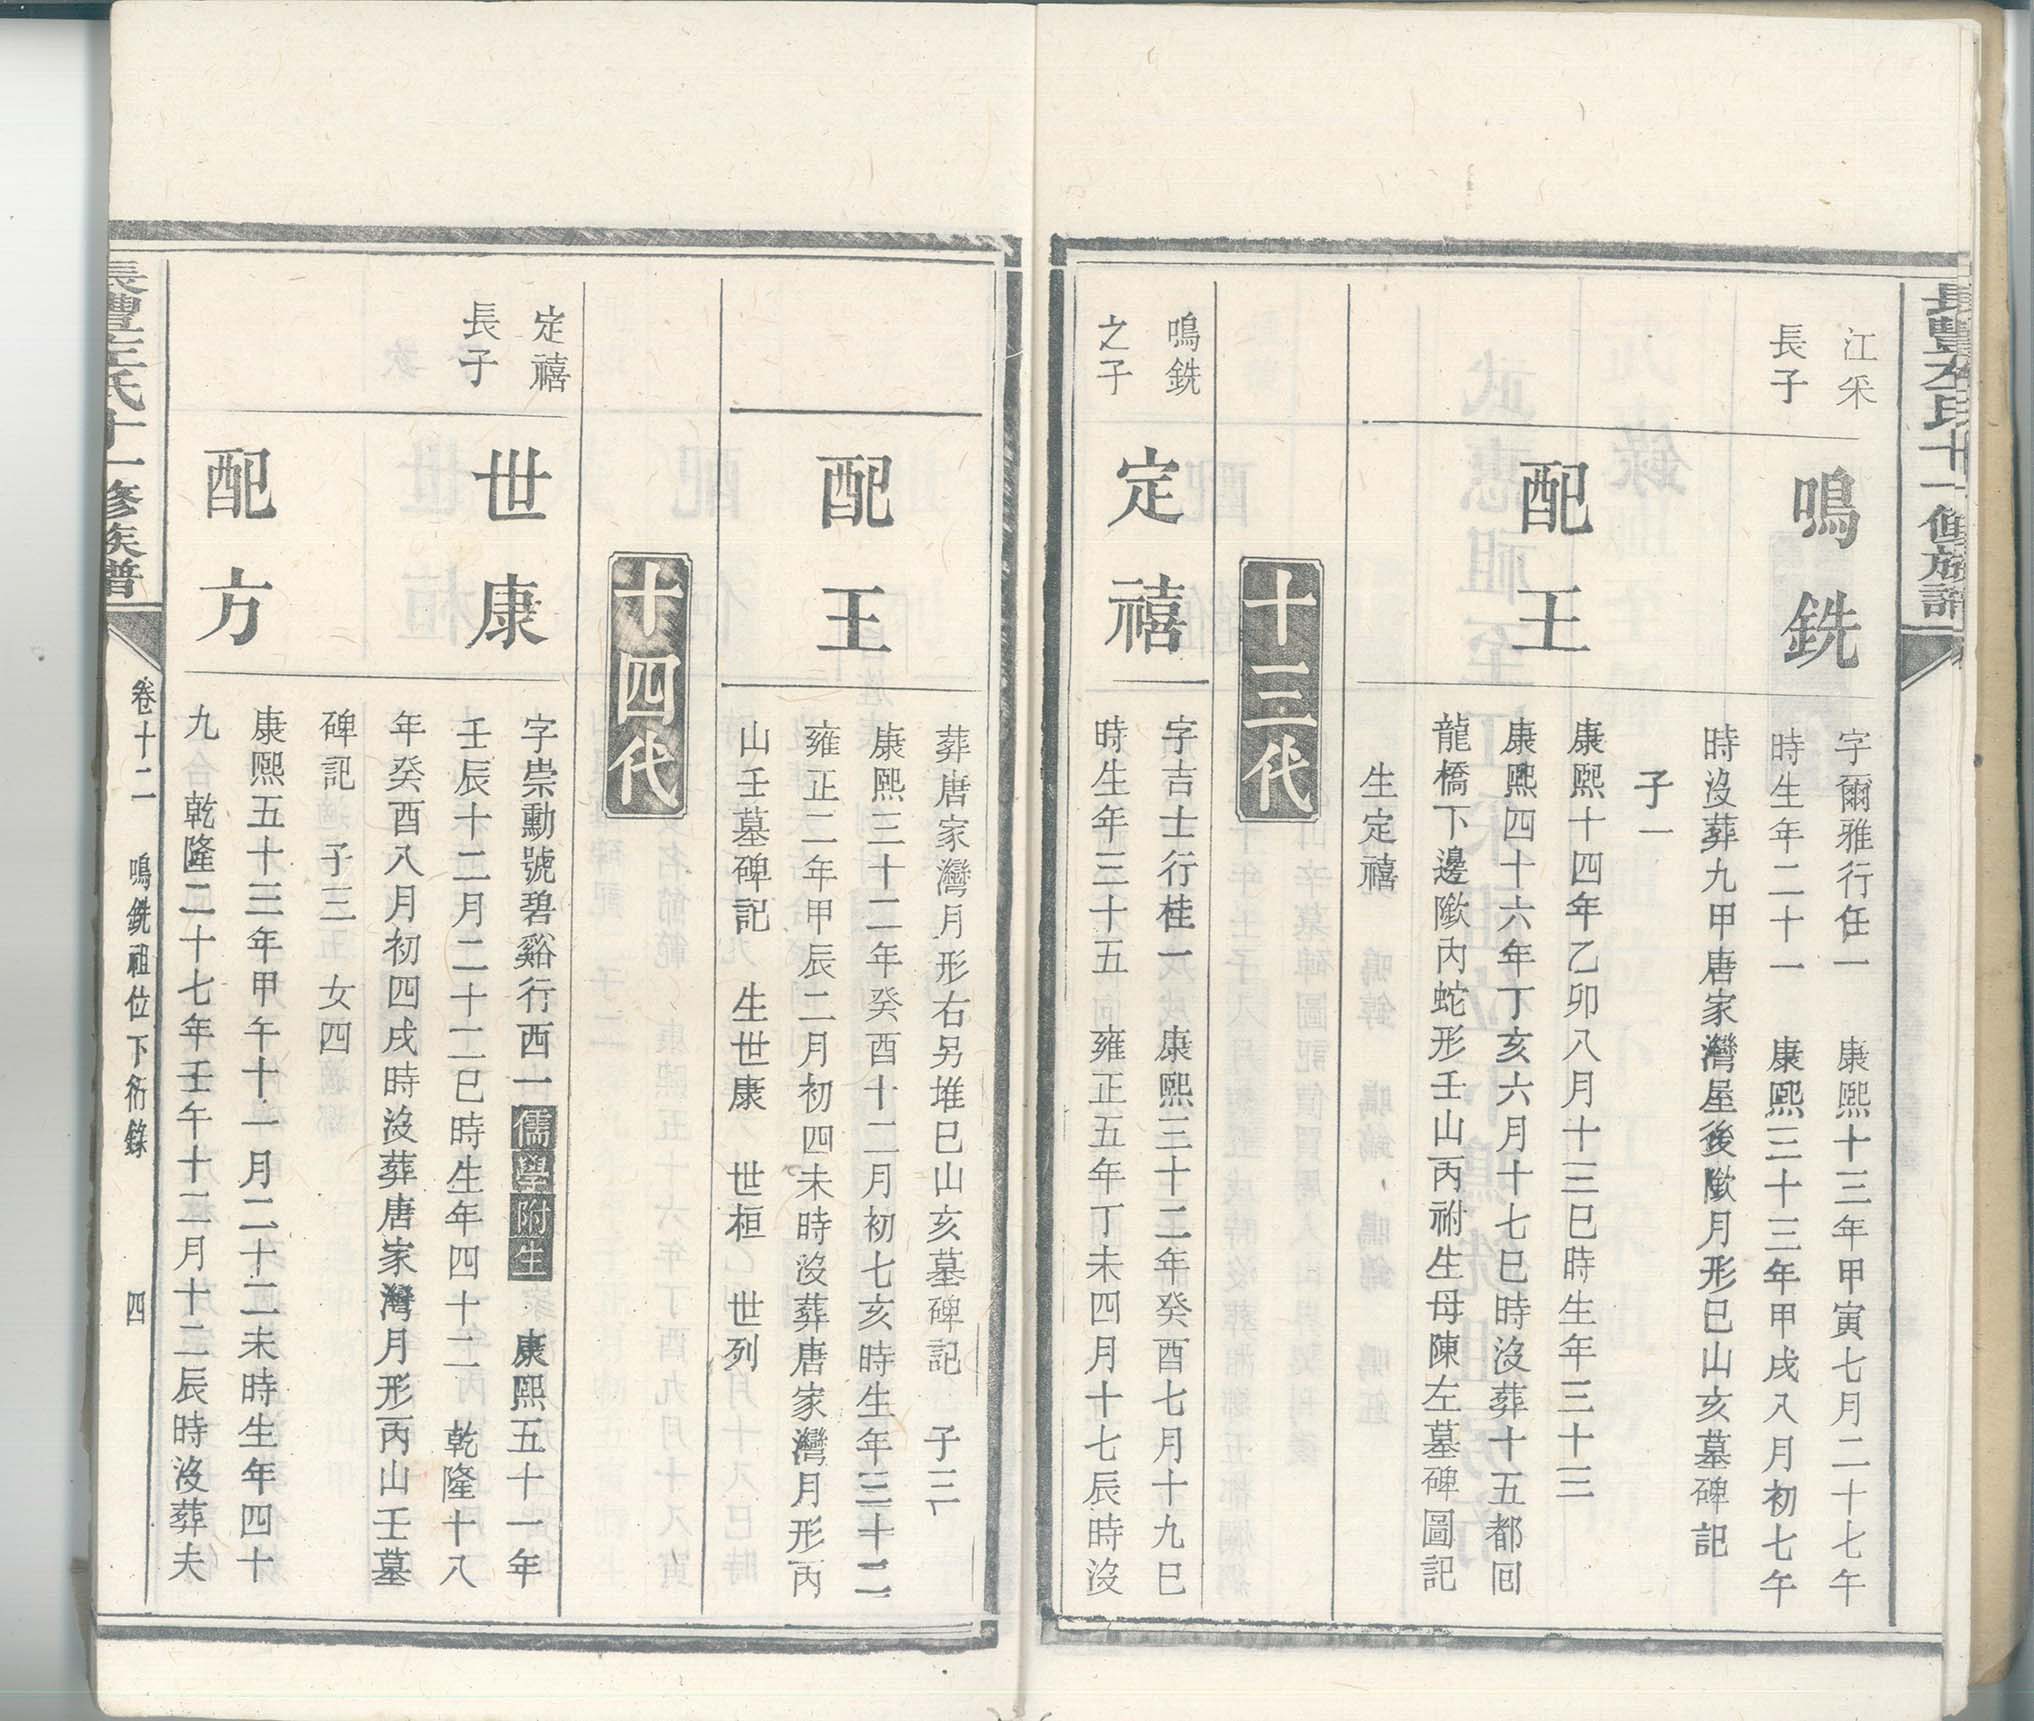 江采
長子
鳴銑
字爾雅行任一　康熙十三年甲寅七月二十七午
時生年二十一　康熙三十三年甲戌八月初七午
時沒葬九甲唐家灣屋後歘月形巳山亥墓碑記
子一
配王
康熙十四年乙卯八月十三巳時生年三十三
康熙四十六年丁亥六月十七巳時沒葬十五都回
龍橋下邊歘內蛇形壬山丙祔生母陳左墓碑圖記
生定禧
十三代
鳴銑
之子
定禧
字吉士行桂一　康熙三十二年癸酉七月十九巳
時生年三十五　雍正五年丁未四月十七辰時沒
葬唐家灣月形右另堆巳山亥墓碑記　子三
配王
康熙三十二年癸酉十二月初七亥時生年三十二
雍正二年甲辰二月初四未時沒葬唐家灣月形丙
山壬墓碑記　生世康　世桓　世列
十四代
定禧
長子
世康
字崇勳號碧谿行西一儒學附生　康熙五十一年
壬辰十二月二十二巳時生年四十二　乾隆十八
年癸酉八月初四戌時沒葬唐家灣月形丙山壬墓
碑記　子三　女四
配方
康熙五十三年甲午十一月二十二未時生年四十
九　乾隆二十七年壬午十二月十二辰時沒葬夫
氏十一修族譜
卷十二　鳴銑祖位下衍錄　四